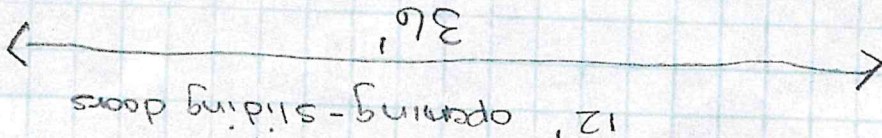 12' opening - sliding doors
36'